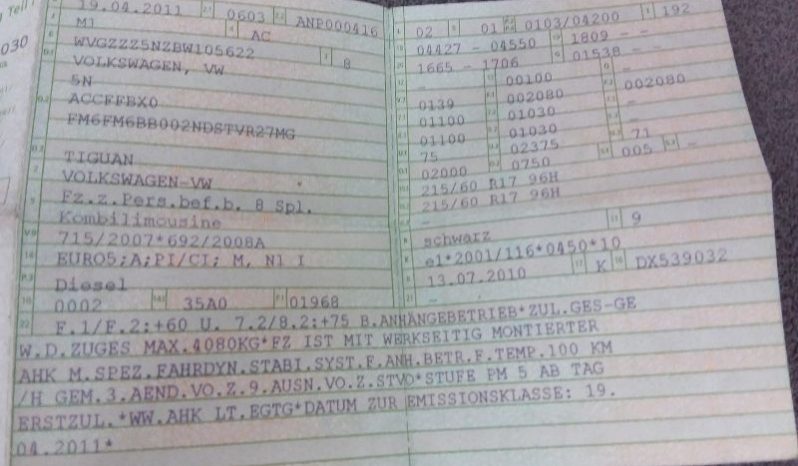 Teil I
030
19.04.2011 2.1 0603 2.2 ANP000416
M1 AC
WVGZZZ5NZBW105622 3 8
VOLKSWAGEN, VW
5N
ACCFFBX0
FM6FM6BB002NDSTVR27MG
TIGUAN
VOLKSWAGEN-VW
Fz.z.Pers.bef.b. 8 Spl.
Kombilimousine
715/2007*692/2008A
EURO5;A;PI/CI; M, N1 I
Diesel
0002 35A0 01968
02 01 0103/04200 192
04427 - 04550 1809 - -
1665 - 1706 01538 - -
- 00100 -
0139 002080 002080
01100 01030 -
01100 01030 -
75 02375 71
02000 0750 005 -
215/60 R17 96H
215/60 R17 96H
-
schwarz 11 9
e1*2001/116*0450*10
13.07.2010 17 K 16 DX539032
21 -
22 F.1/F.2:+60 U. 7.2/8.2:+75 B.ANHÄNGEBETRIEB*ZUL.GES-GE
W.D.ZUGES MAX.4080KG*FZ IST MIT WERKSEITIG MONTIERTER
AHK M.SPEZ.FAHRDYN.STABI.SYST.F.ANH.BETR.F.TEMP.100 KM
/H GEM.3.AEND.VO.Z.9.AUSN.VO.Z.STVO*STUFE PM 5 AB TAG
ERSTZUL.*WW.AHK LT.EGTG*DATUM ZUR EMISSIONSKLASSE: 19.
04.2011*